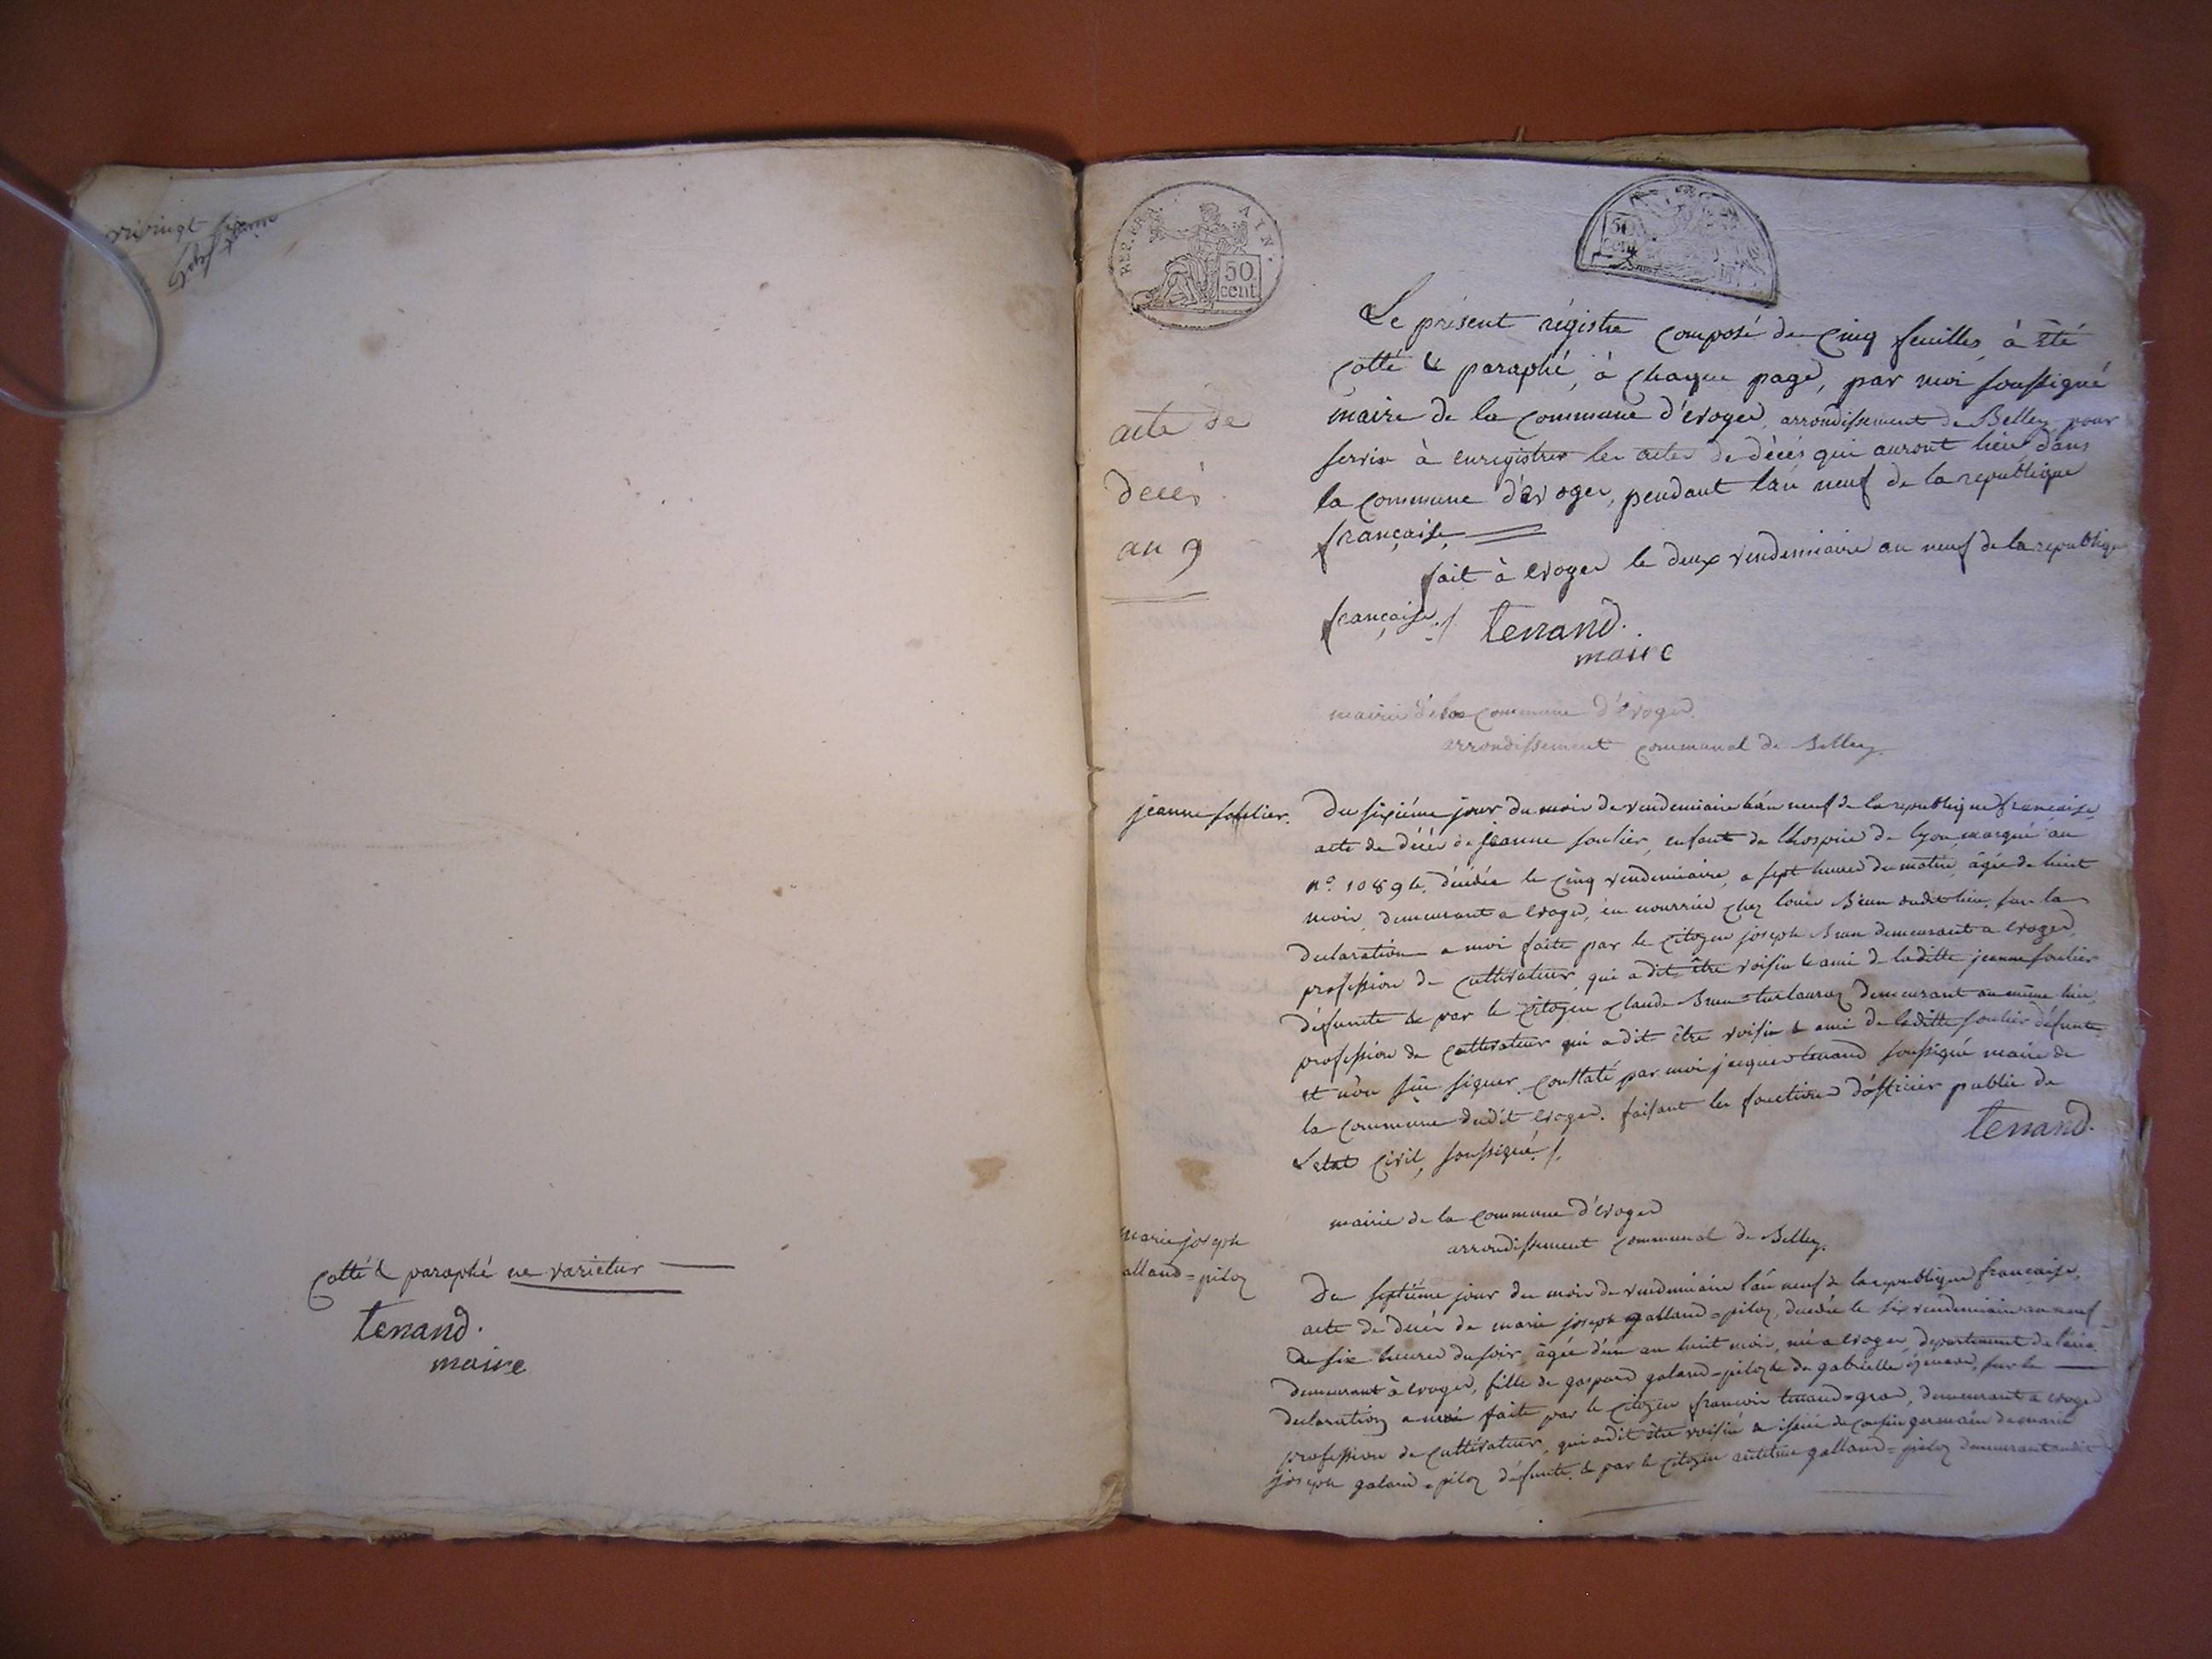 cotté & paraphé ne varietur
tenand.
maire
REP. FRA. AIN.
50
cent.
50
cent
acte de
decès
an 9
Le présent régistre composé de cinq feuilles, à été
cotté & paraphé, à chaque page, par moi soussigné
maire de la commune d'evoges, arrondissement de Belley, pour
servir à enregistrer les actes de décès qui auront lieu dans
la commune d'evoges, pendant l'an neuf de la republique
française
fait à evoges le deux vendemiaire an neuf de la republique
française ./. tenand.
maire
mairie de la commune d'evoges
arrondissement communal de Belley.
jeanne soulier.
Du sixiéme jour du mois de vendemiaire l'an neuf de la republique française
acte de décès de jeanne soulier, enfant de l'hospice de lyon, marqué au
n.º décédée le cinq vendemiaire, a sept heures du matin, âgée de huit
mois, demeurant a evoges, en nourrice chez louis Brun dudit lieu, sur la
declaration a moi faite par le citoyen joseph Brun demeurant a evoges,
profession de cultivateur, qui a dit être voisin & ami de laditte jeanne soulier
défunte & par le citoyen claude Brun demeurant au même lieu,
profession de cultivateur qui a dit être voisin & ami de laditte soulier défunte
et n'on sûe signer. constaté par moi jacques tenand soussigné maire de
la commune dudit evoges. faisant les fonctions d'officier public de
L'etat civil, soussigné ./.
tenand.
mairie de la commune d'évoges
arrondissement communal de Belley.
marie joseph
alland=piloz
Du septiéme jour du mois de vendemiaire l'an neuf de la republique française,
acte de décès de marie joseph galland=piloz, decedée le six vendemiaire an neuf
de six heures du soir, âgée d'un an huit mois, née a evoges, departement de l'ain
demeurant à evoges, fille de gaspard galand=piloz & de gabrielle sur la
declaration a moi faite par le citoyen françois tenand=gros, demeurant a evoges
profession de cultivateur, qui a dit être voisin & issue de cousin germain de marie
joseph galand=piloz défunte, & par le citoyen antelme galland=piloz demeurant audit